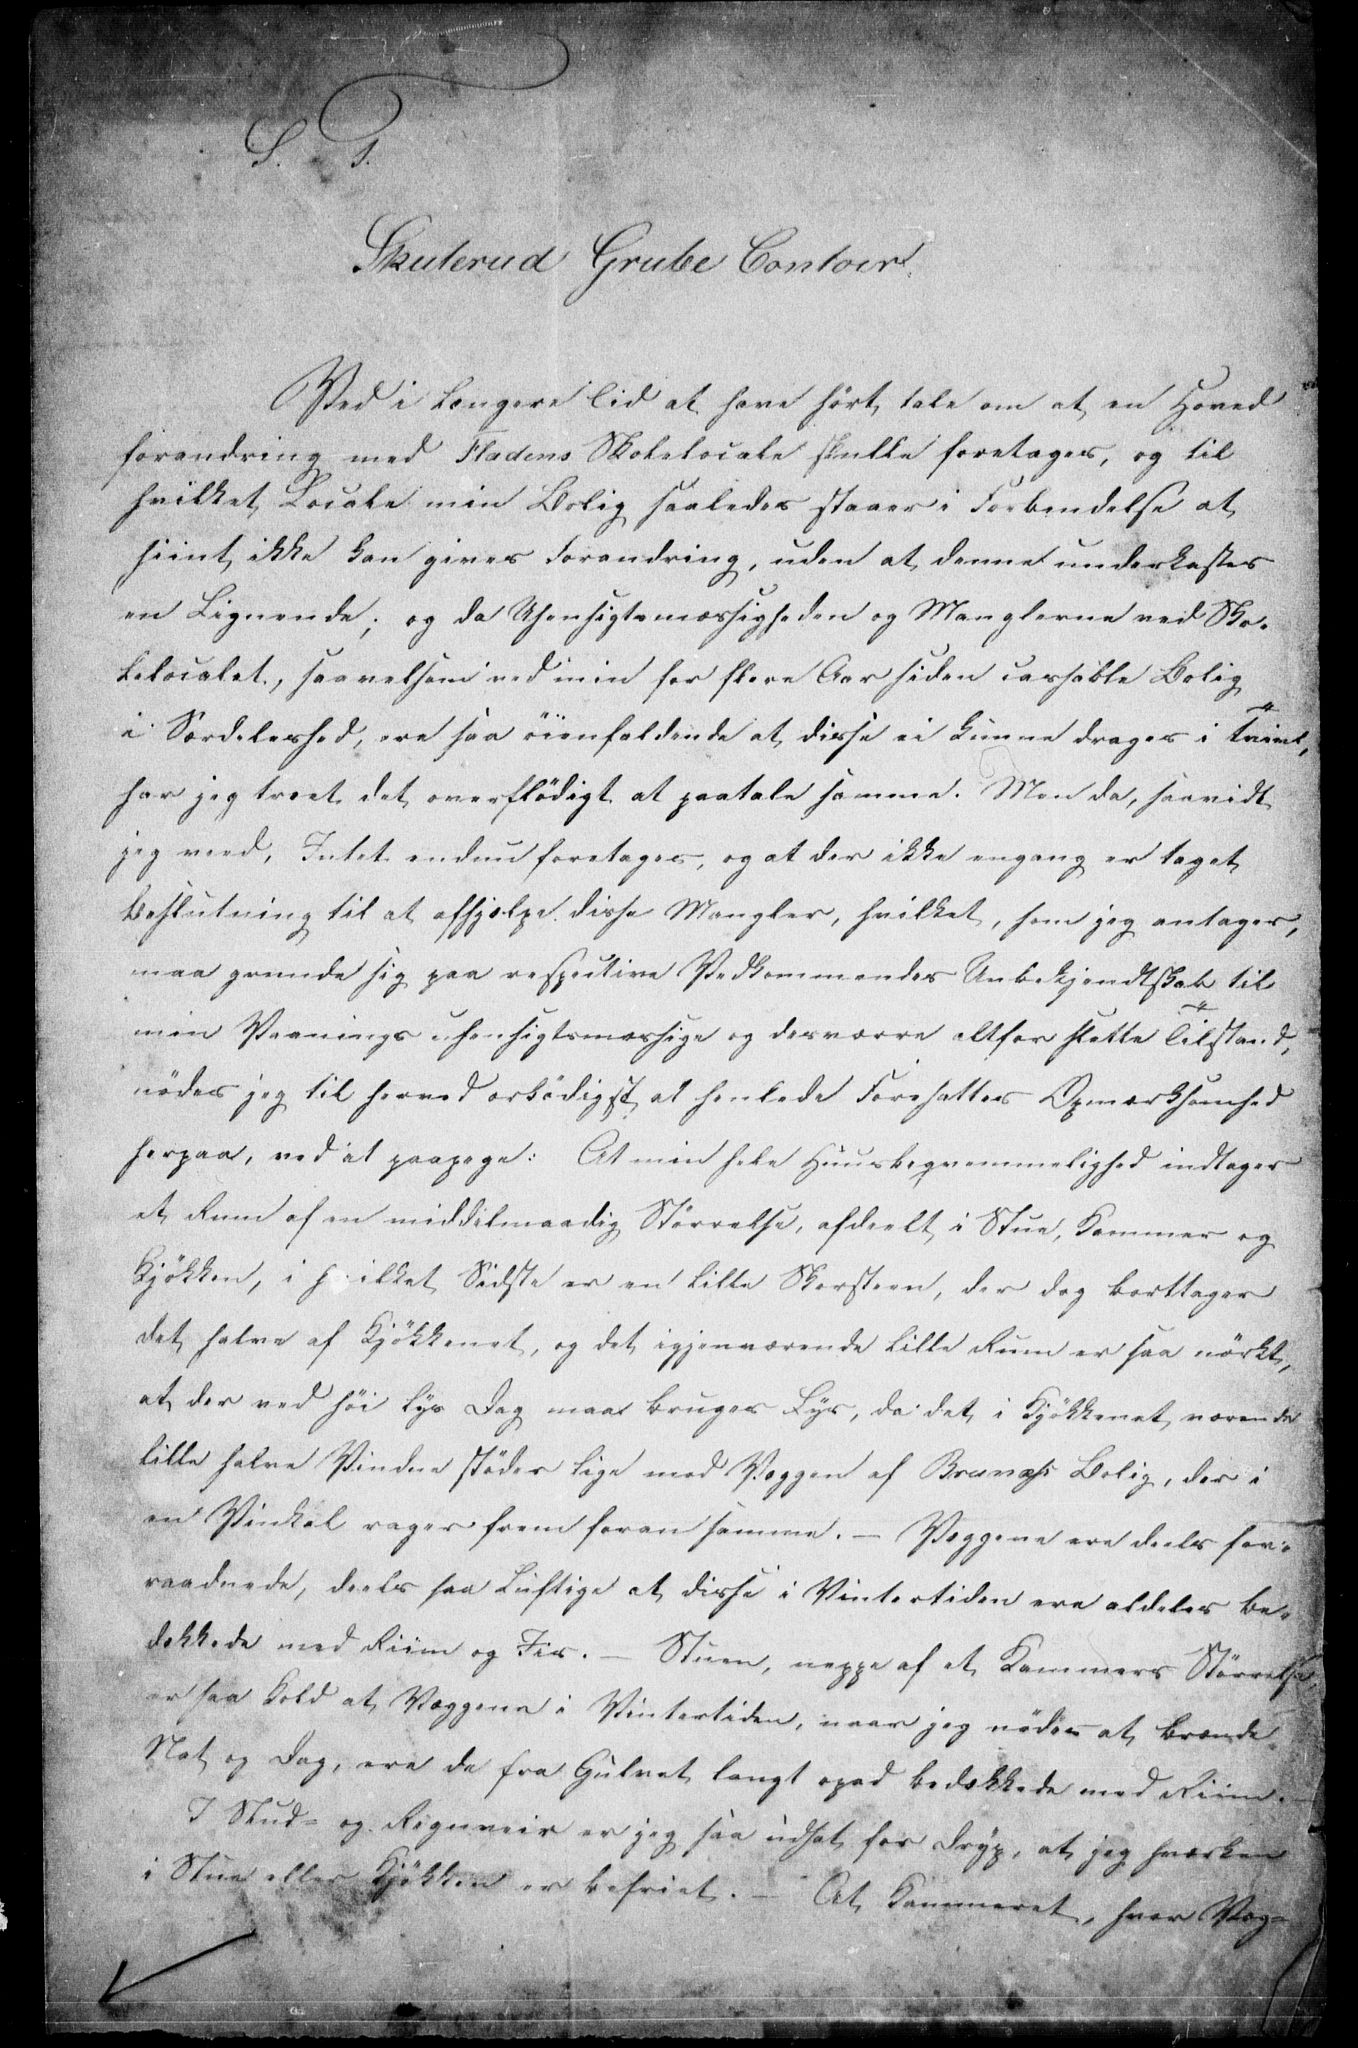 S. T.
Skuterud Grube Contoir.
Ved i længere Tid at have hört tale om at en Hoved
forandring med Fladens Skolelocale skulle foretages, og til
hvilket Locale min Bolig saaledes staaer i Forbindelse at
hiint ikke kan gives Forandring, uden at denne underkastes
en Lignende; og da Uhensigtsmæssigheden og Manglerne ved Sko-
lelocalet, saavelsom ved min for flere Aar siden casserte Bolig
i Særdeleshed, ere saa öienfaldende at disse ei kunne drages i Tvivl,
har jeg troet det overflödigt at paatale samme. Men da, saavidt
jeg veed, Intet endnu foretages, og at der ikke engang er taget
Beslutning til at afhjælpe disse Mangler, hvilket, som jeg antager,
maa grunde sig paa respective Vedkommendes Ubekjendtskab til
min Vaanings uhensigtsmæssige og desværre altfor slette Tilstand,
nödes jeg til herved ærbödigst at henlede Foresattes Opmærksomhed
herpaa, ved at paapege: At min hele Huusbeqvemmelighed indtager
et Rum af en middelmaadig Störrelse, afdeelt i Stue, Kammer og
Kjökken, i hvilket Sidste er en lille Skorsteen, der dog borttager
det halve af Kjökkenet, og det igjenværende lille Rum er saa mörkt,
at der ved höi lys Dag maa bruges Lys, da det i Kjökkenet værende
lille halve Vindue stöder lige mod Væggen af Bolig, der i
en Vinkel rager frem foran samme. — Væggene ere deels for-
raadnede, deels saa Luftige at disse i Vintertiden ere aldeles be-
dekkede med Riim og Iis. — Stuen, neppe af et Kammers Störrelse,
er saa kold at Væggene i Vintertiden, naar jeg nödes at brænde
Nat og Dag, ere de fra Gulvet langt opad bedækkede med Riim. —
I Slud- og Regnveir er jeg saa udsat for Dryp, at jeg hverken
i Stue eller Kjökken er befriet. — At Kammeret, hvor Væg-